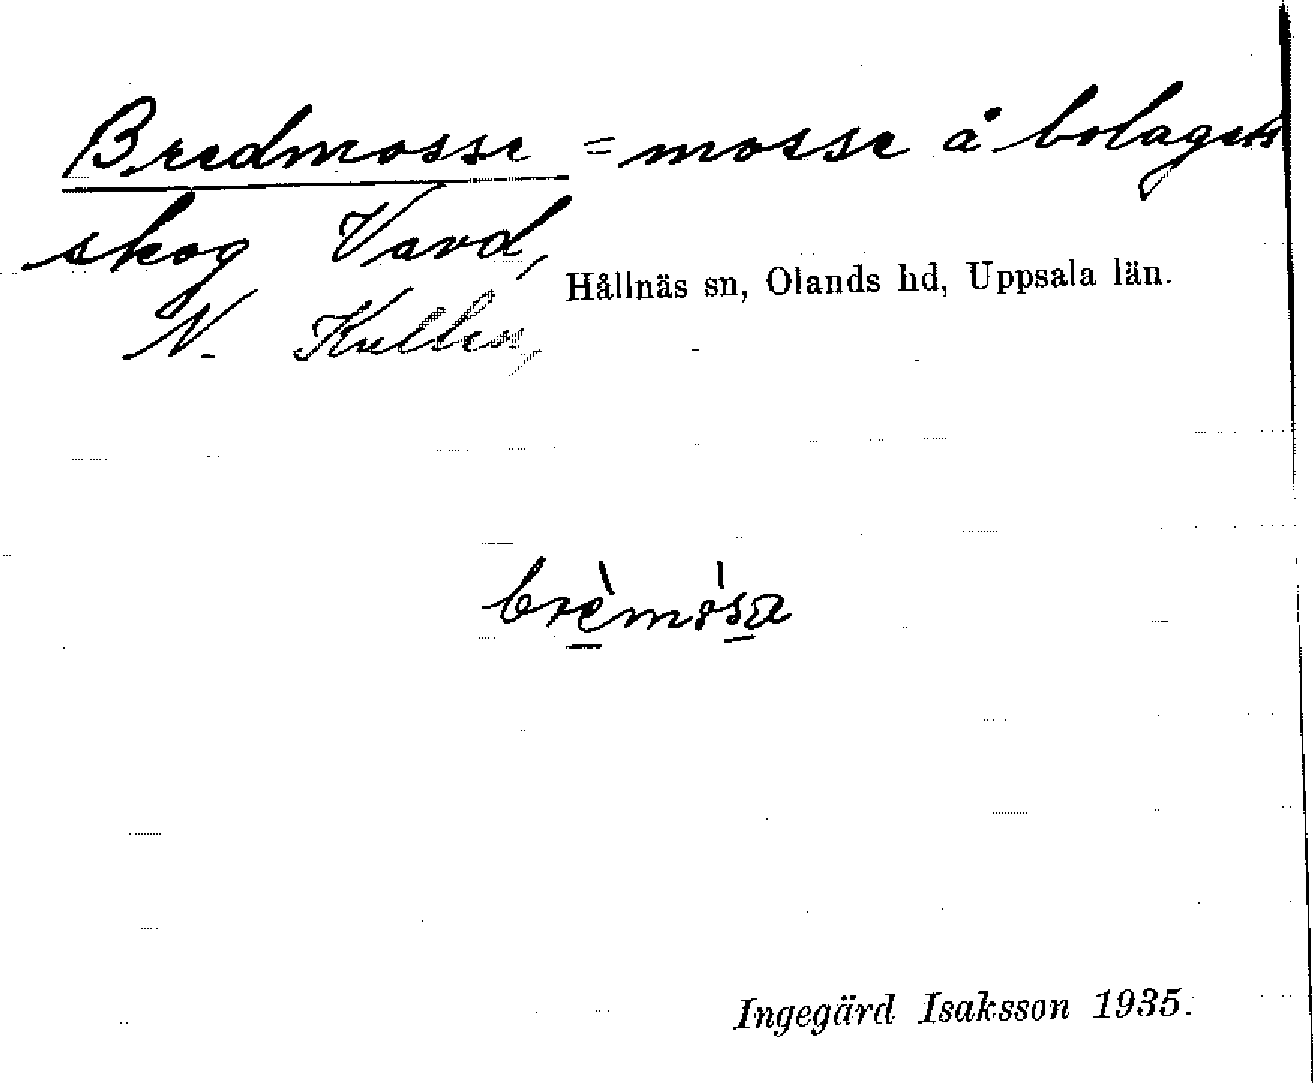 Bredmosse = mosse å bolagets
skog Vavd,
Hållnäs sn, Olands hd, Uppsala län.
N. Kullen,
brèmòsa
Ingegärd Isaksson 1935.